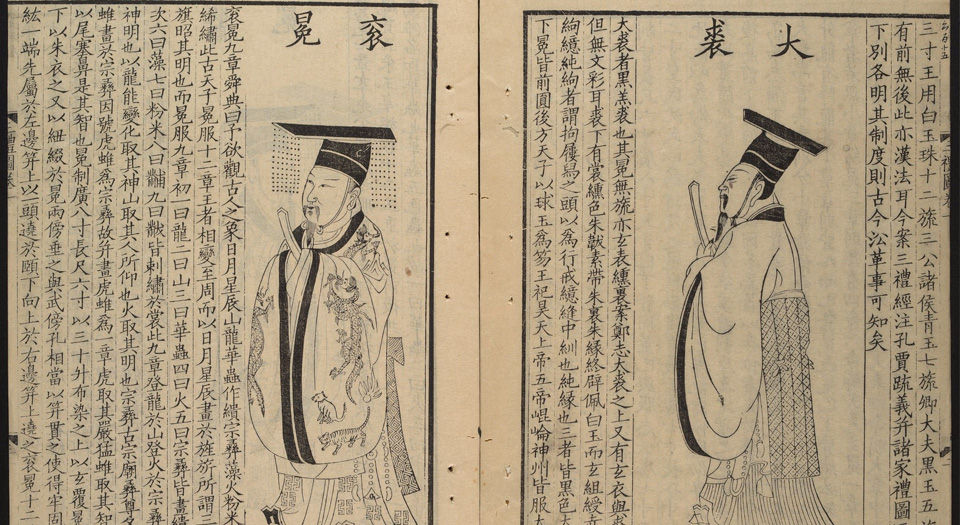 三寸王用白玉珠十二旒三公諸侯青玉七旒卿大夫黑玉五
有前無後此亦漢法耳今案三禮經注孔賈疏義并諸家禮圖
下別各明其制度則古今沿革事可知矣
大裘
大裘者黑羔裘也其冕無旒亦玄表纁裏案鄭志大裘之上又有玄衣與裘
但無文彩耳裘下有裳纁色朱韍素帶朱裏朱緣終辟佩白玉而玄組綬
絇繶純絇者謂拘屨舄之頭以爲行戒繶縫中紃也純緣也三者皆黑色
下冕皆前圓後方天子以球玉爲笏王祀昊天上帝五帝崐崘神州皆服
袞冕
袞冕九章舜典曰予欲觀古人之象日月星辰山龍華蟲作繢宗彝藻火粉米
絺繡此古天子冕服十二章王者相變至周而以日月星辰畫於旌旂所謂三
旗昭其明也而冕服九章初一曰龍二曰山三曰華蟲四曰火五曰宗彝皆畫繢
次六曰藻七曰粉米八曰黼九曰黻皆刺繡於裳此九章登龍於山登火於宗彝
神明也以龍能變化取其神山取其人所仰也火取其明也宗彝古宗廟彝尊名
蜼畫於宗彝因號虎蜼爲宗彝故并畫虎蜼爲一章虎取其嚴猛蜼取其智
以尾塞鼻是其智也冕制廣八寸長尺六寸以三十升布染之上以玄覆
下以朱衣之又以紐綴於冕兩傍垂之與武傍孔相當以筓貫之使得牢固
紘一端先屬於左邊筓上以一頭遶於頤下向上於右邊筓上遶之袞冕十二